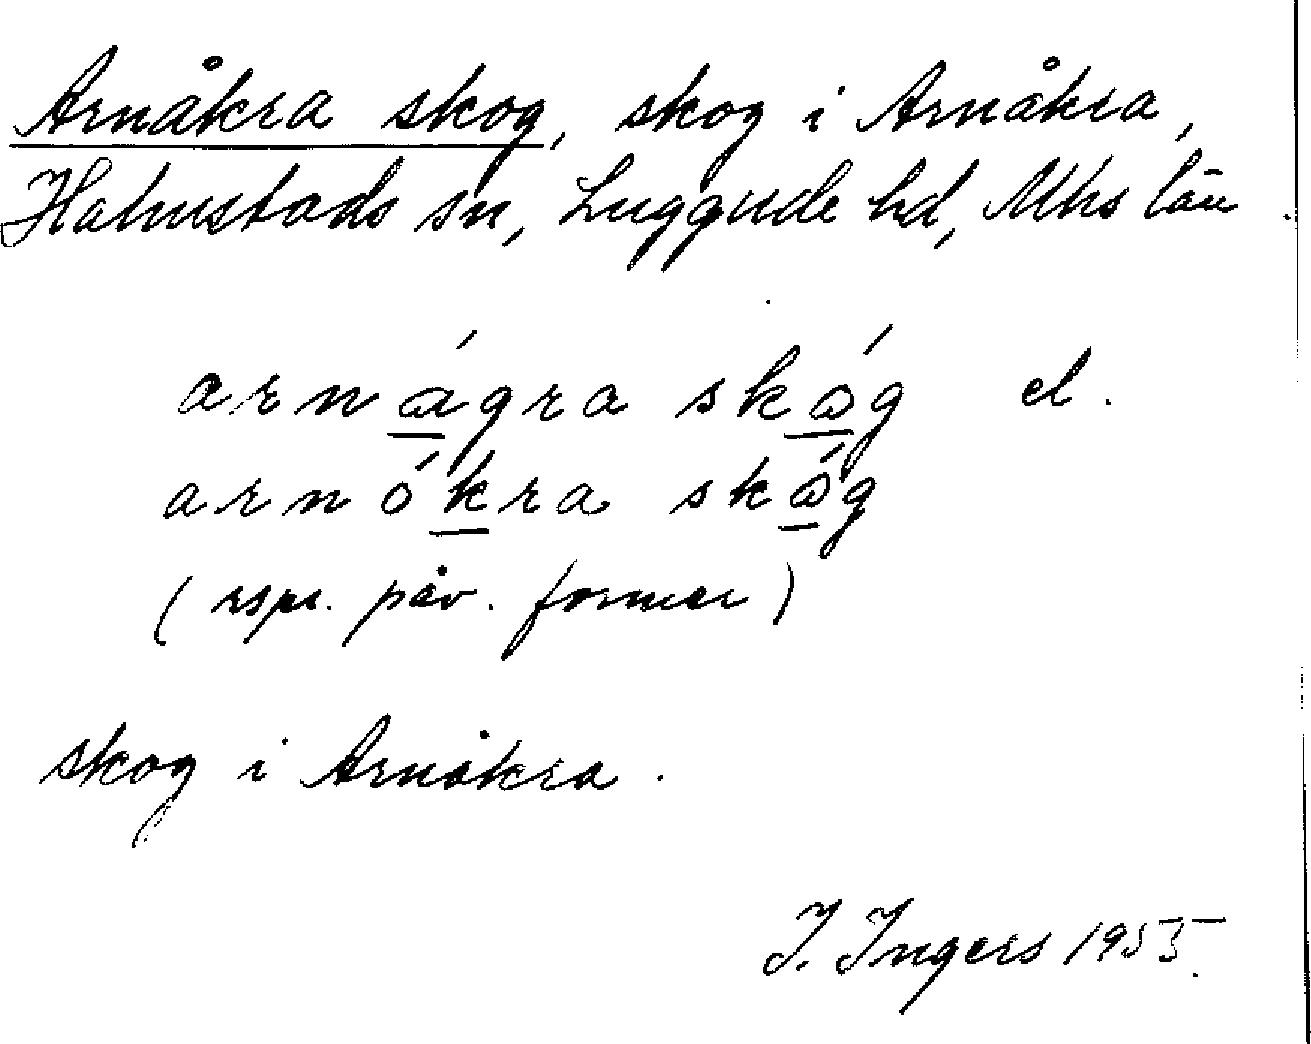 Arnåkra skog, skog i Arnåkra,
Halmstads sn, Luggude hd, Mhs län.
arnágra skóg el.
arnókra skóg
(rspr. påv. former)
skog i Arnåkra.
I. Ingers 1955.